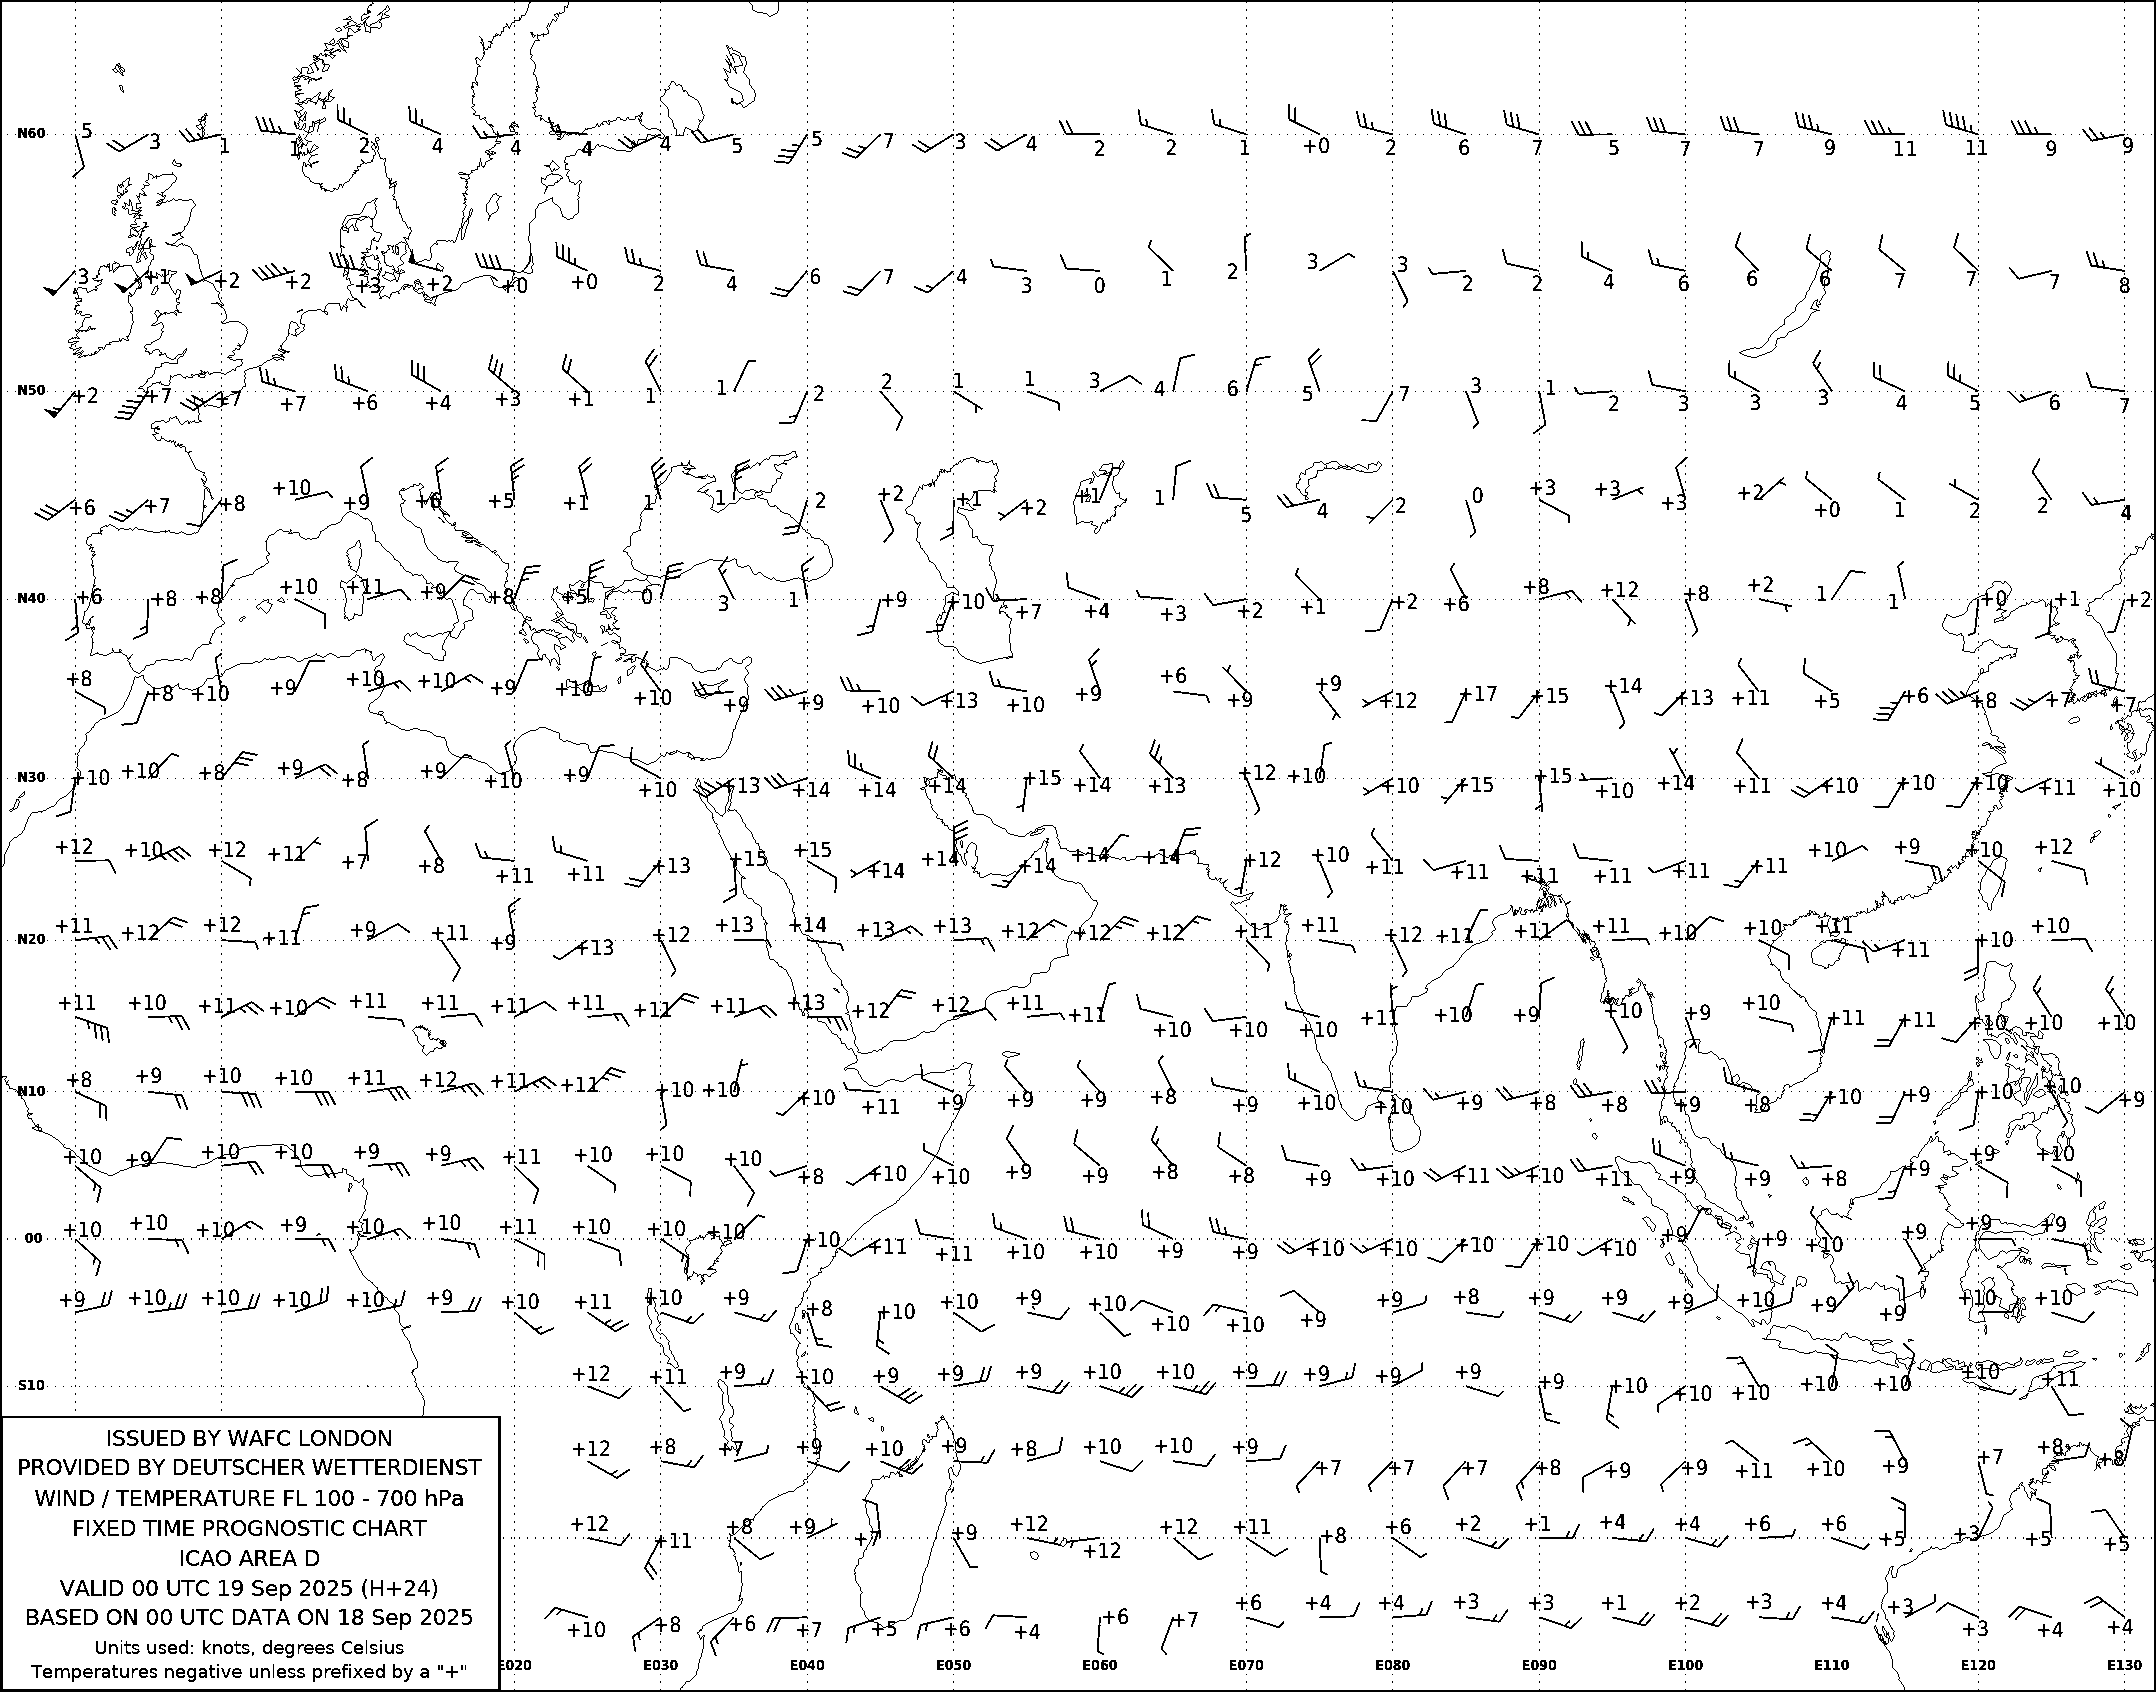 N60 5 3 1 1 2 4 4 4 4 5 5 7 3 4 2 2 1 +0 2 6 7 5 7 7 9 11 11 9 9
3 +1 +2 +2 +3 +2 +0 +0 2 4 6 7 4 3 0 1 2 3 3 2 2 4 6 6 6 7 7 7 8
N50 +2 +7 +7 +7 +6 +4 +3 +1 1 1 2 2 1 1 3 4 6 5 7 3 1 2 3 3 3 4 5 6 7
+6 +7 +8 +10 +9 +6 +5 +1 1 1 2 +2 +1 +2 +1 1 5 4 2 0 +3 +3 +3 +2 +0 1 2 2 4
N40 +6 +8 +8 +10 +11 +9 +8 +5 0 3 1 +9 +10 +7 +4 +3 +2 +1 +2 +6 +8 +12 +8 +2 1 1 +0 +1 +2
+8 +8 +10 +9 +10 +10 +9 +10 +10 +9 +9 +10 +13 +10 +9 +6 +9 +9 +12 +17 +15 +14 +13 +11 +5 +6 +8 +7 +7
N30 +10 +10 +8 +9 +8 +9 +10 +9 +10 +13 +14 +14 +14 +15 +14 +13 +12 +10 +10 +15 +15 +10 +14 +11 +10 +10 +10 +11 +10
+12 +10 +12 +11 +7 +8 +11 +11 +13 +15 +15 +14 +14 +14 +14 +14 +12 +10 +11 +11 +11 +11 +11 +11 +10 +9 +10 +12
N20 +11 +12 +12 +11 +9 +11 +9 +13 +12 +13 +14 +13 +13 +12 +12 +12 +11 +11 +12 +11 +11 +11 +10 +10 +11 +11 +10 +10
+11 +10 +11 +10 +11 +11 +11 +11 +11 +11 +13 +12 +12 +11 +11 +10 +10 +10 +11 +10 +9 +10 +9 +10 +11 +11 +10 +10 +10
N10 +8 +9 +10 +10 +11 +12 +11 +11 +10 +10 +10 +11 +9 +9 +9 +8 +9 +10 +10 +9 +8 +8 +9 +8 +10 +9 +10 +10 +9
+10 +9 +10 +10 +9 +9 +11 +10 +10 +10 +8 +10 +10 +9 +9 +8 +8 +9 +10 +11 +10 +11 +9 +9 +8 +9 +9 +10
00 +10 +10 +10 +9 +10 +10 +11 +10 +10 +10 +10 +11 +11 +10 +10 +9 +9 +10 +10 +10 +10 +10 +9 +9 +10 +9 +9 +9
+9 +10 +10 +10 +10 +9 +10 +11 +10 +9 +8 +10 +10 +9 +10 +10 +10 +9 +9 +8 +9 +9 +9 +10 +9 +9 +10 +10
S10 +12 +11 +9 +10 +9 +9 +9 +10 +10 +9 +9 +9 +9 +9 +10 +10 +10 +10 +10 +10 +11
+12 +8 +7 +9 +10 +9 +8 +10 +10 +9 +7 +7 +7 +8 +9 +9 +11 +10 +9 +7 +8 +8
+12 +11 +8 +9 +7 +9 +12 +12 +12 +11 +8 +6 +2 +1 +4 +4 +6 +6 +5 +3 +5 +5
+10 +8 +6 +7 +5 +6 +4 +6 +7 +6 +4 +4 +3 +3 +1 +2 +3 +4 +3 +3 +4 +4
E020 E030 E040 E050 E060 E070 E080 E090 E100 E110 E120 E130
ISSUED BY WAFC LONDON
PROVIDED BY DEUTSCHER WETTERDIENST
WIND / TEMPERATURE FL 100 - 700 hPa
FIXED TIME PROGNOSTIC CHART
ICAO AREA D
VALID 00 UTC 19 Sep 2025 (H+24)
BASED ON 00 UTC DATA ON 18 Sep 2025
Units used: knots, degrees Celsius
Temperatures negative unless prefixed by a "+"